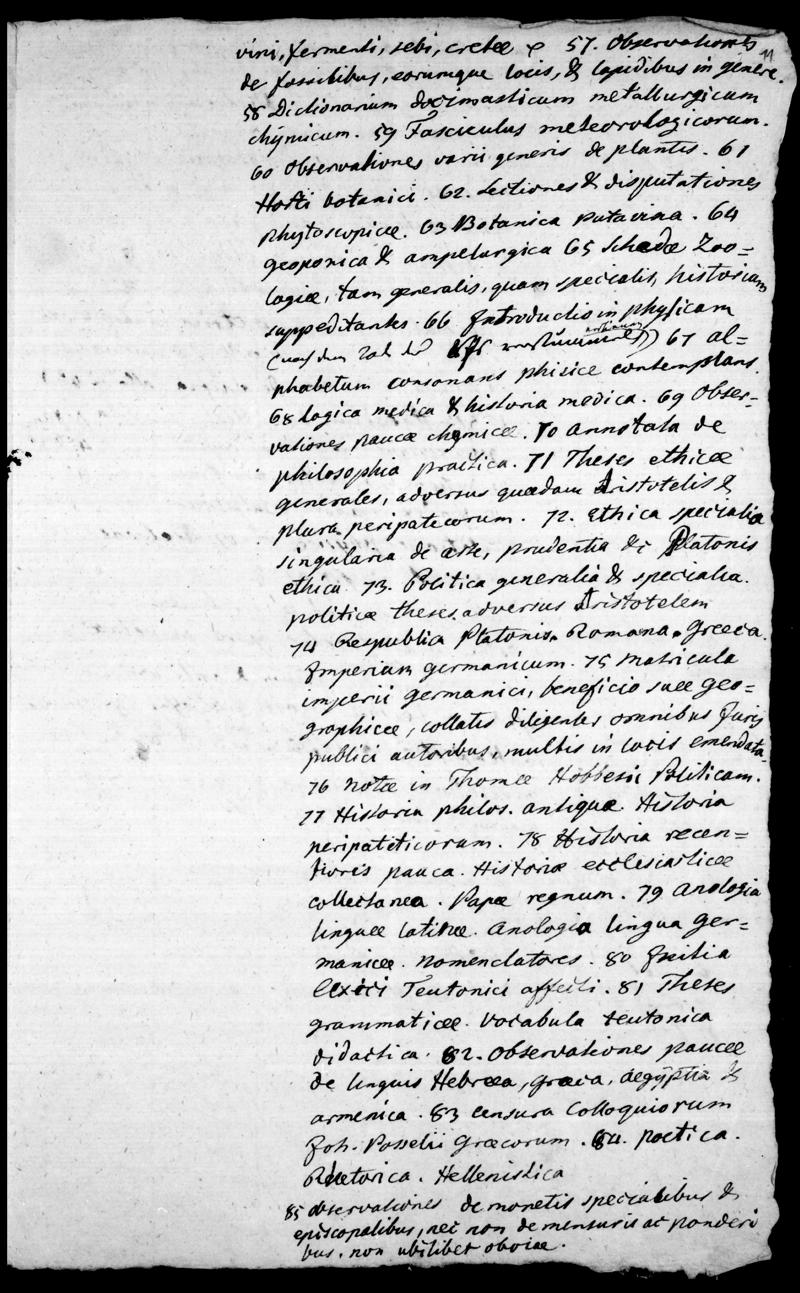 11
vini, fermenti, sebi, cretæ 57. Observationes
de fossilibus, eorumque locis, & lapidibus in genere.
58 Dictionarium docimasticum metallurgicum
chymicum. 59 Fasciculus meteorologicorum.
60 Observationes varii generis de plantis. 61
Horti botanici. 62. Lectiones & disputationes
phytoscopicæ. 63 Botanica putavina. 64
geoponica & ampelurgica 65 Schedæ Zoo=
logiæ, tam generalis, quam specialis, historiam
suppeditantes. 66 Introductio in physicam
67 al=
phabetum consonans phisice contemplans.
68 Logica medica & historia medica. 69 Obser=
vationes paucæ chymicæ. 70 Annotata de
philosophia practica. 71 Theses ethicæ
generales, adversus quædam Aristotelis &
plura peripateticorum. 72. Ethica specialia
singularia de arte, prudentia &c Platonis
ethica. 73. Politica generalia & specialia.
politicæ theses adversus Aristotelem
74 Respublica Platonis. Romana. Græca.
Imperium germanicum. 75 Matricula
imperii germanici, beneficio suæ geo=
graphicæ, collatis diligenter omnibus Juris
publici autoribus, multis in locis emendata.
76 Notæ in Thomæ Hobbesii Politicam.
77 Historia philos. antiquæ. Historia
peripateticorum. 78 Historia recen=
tioris pauca. Historiæ ecclesiasticæ
collectanea. Papæ regnum. 79 Anologia
linguæ latinæ. Anologia lingua Ger=
manicæ. Nomenclatores. 80 Initia
lexici Teutonici affecti. 81 Theses
grammaticæ. Vocabula teutonica
didactica. 82. Observationes paucæ
de linguis Hebræa, græca, Aegÿptia &
armenica. 83 Censura Colloquiorum
Joh. Posselii Græcorum. 84. Poetica.
Rhetorica. Hellenistica
85 observationes de monetis specialibus &
episcopalibus, nec non de mensuris ac ponderi
bus, non ubilibet obviæ.